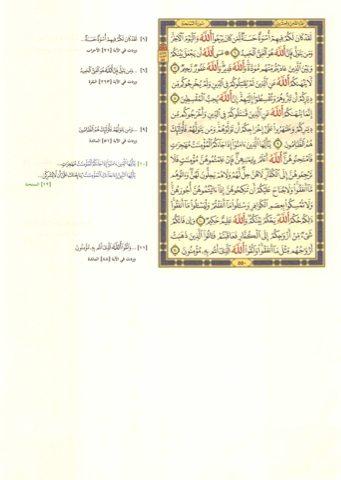 سورة الممتحنة
لَقَدْ كَانَ لَكُمْ فِيهِمْ أُسْوَةٌ حَسَنَةٌ لِّمَن كَانَ يَرْجُوا۟ ٱللَّهَ وَٱلْيَوْمَ ٱلْءَاخِرَ
وَمَن يَتَوَلَّ فَإِنَّ ٱللَّهَ هُوَ ٱلْغَنِىُّ ٱلْحَمِيدُ ٦ عَسَى ٱللَّهُ أَن يَجْعَلَ بَيْنَكُمْ
وَبَيْنَ ٱلَّذِينَ عَادَيْتُم مِّنْهُم مَّوَدَّةً وَٱللَّهُ قَدِيرٌ وَٱللَّهُ غَفُورٌ رَّحِيمٌ ٧
لَّا يَنْهَىٰكُمُ ٱللَّهُ عَنِ ٱلَّذِينَ لَمْ يُقَٰتِلُوكُمْ فِى ٱلدِّينِ وَلَمْ يُخْرِجُوكُم مِّن
دِيَٰرِكُمْ أَن تَبَرُّوهُمْ وَتُقْسِطُوٓا۟ إِلَيْهِمْ إِنَّ ٱللَّهَ يُحِبُّ ٱلْمُقْسِطِينَ ٨
إِنَّمَا يَنْهَىٰكُمُ ٱللَّهُ عَنِ ٱلَّذِينَ قَٰتَلُوكُمْ فِى ٱلدِّينِ وَأَخْرَجُوكُم مِّن
دِيَٰرِكُمْ وَظَٰهَرُوا۟ عَلَىٰٓ إِخْرَاجِكُمْ أَن تَوَلَّوْهُمْ وَمَن يَتَوَلَّهُمْ فَأُو۟لَٰٓئِكَ
هُمُ ٱلظَّٰلِمُونَ ٩ يَٰٓأَيُّهَا ٱلَّذِينَ ءَامَنُوٓا۟ إِذَا جَآءَكُمُ ٱلْمُؤْمِنَٰتُ مُهَٰجِرَٰتٍ
فَٱمْتَحِنُوهُنَّ ٱللَّهُ أَعْلَمُ بِإِيمَٰنِهِنَّ فَإِنْ عَلِمْتُمُوهُنَّ مُؤْمِنَٰتٍ فَلَا
تَرْجِعُوهُنَّ إِلَى ٱلْكُفَّارِ لَا هُنَّ حِلٌّ لَّهُمْ وَلَا هُمْ يَحِلُّونَ لَهُنَّ وَءَاتُوهُم
مَّآ أَنفَقُوا۟ وَلَا جُنَاحَ عَلَيْكُمْ أَن تَنكِحُوهُنَّ إِذَآ ءَاتَيْتُمُوهُنَّ أُجُورَهُنَّ
وَلَا تُمْسِكُوا۟ بِعِصَمِ ٱلْكَوَافِرِ وَسْـَٔلُوا۟ مَآ أَنفَقْتُمْ وَلْيَسْـَٔلُوا۟ مَآ أَنفَقُوا۟
ذَٰلِكُمْ حُكْمُ ٱللَّهِ يَحْكُمُ بَيْنَكُمْ وَٱللَّهُ عَلِيمٌ حَكِيمٌ ١٠ وَإِن فَاتَكُمْ
شَىْءٌ مِّنْ أَزْوَٰجِكُمْ إِلَى ٱلْكُفَّارِ فَعَاقَبْتُمْ فَـَٔاتُوا۟ ٱلَّذِينَ ذَهَبَتْ
أَزْوَٰجُهُم مِّثْلَ مَآ أَنفَقُوا۟ وَٱتَّقُوا۟ ٱللَّهَ ٱلَّذِىٓ أَنتُم بِهِۦ مُؤْمِنُونَ ١١
٥٥٠
[٦] لَقَدْ كَانَ لَكُمْ فِيهِمْ أُسْوَةٌ حَسَنَةٌ...
وردت في الآية [٢١] الأحزاب
[٦] ...وَمَن يَتَوَلَّ فَإِنَّ ٱللَّهَ هُوَ ٱلْغَنِىُّ ٱلْحَمِيدُ
[٩] ...وَمَن يَتَوَلَّهُمْ فَأُو۟لَٰٓئِكَ هُمُ ٱلظَّٰلِمُونَ
[١٠] يَٰٓأَيُّهَا ٱلَّذِينَ ءَامَنُوٓا۟ إِذَا جَآءَكُمُ ٱلْمُؤْمِنَٰتُ مُهَٰجِرَٰتٍ...
[١٢] الممتحنة
[١١] ...وَٱتَّقُوا۟ ٱللَّهَ ٱلَّذِىٓ أَنتُم بِهِۦ مُؤْمِنُونَ
وردت في الآية [٨٨] المائدة